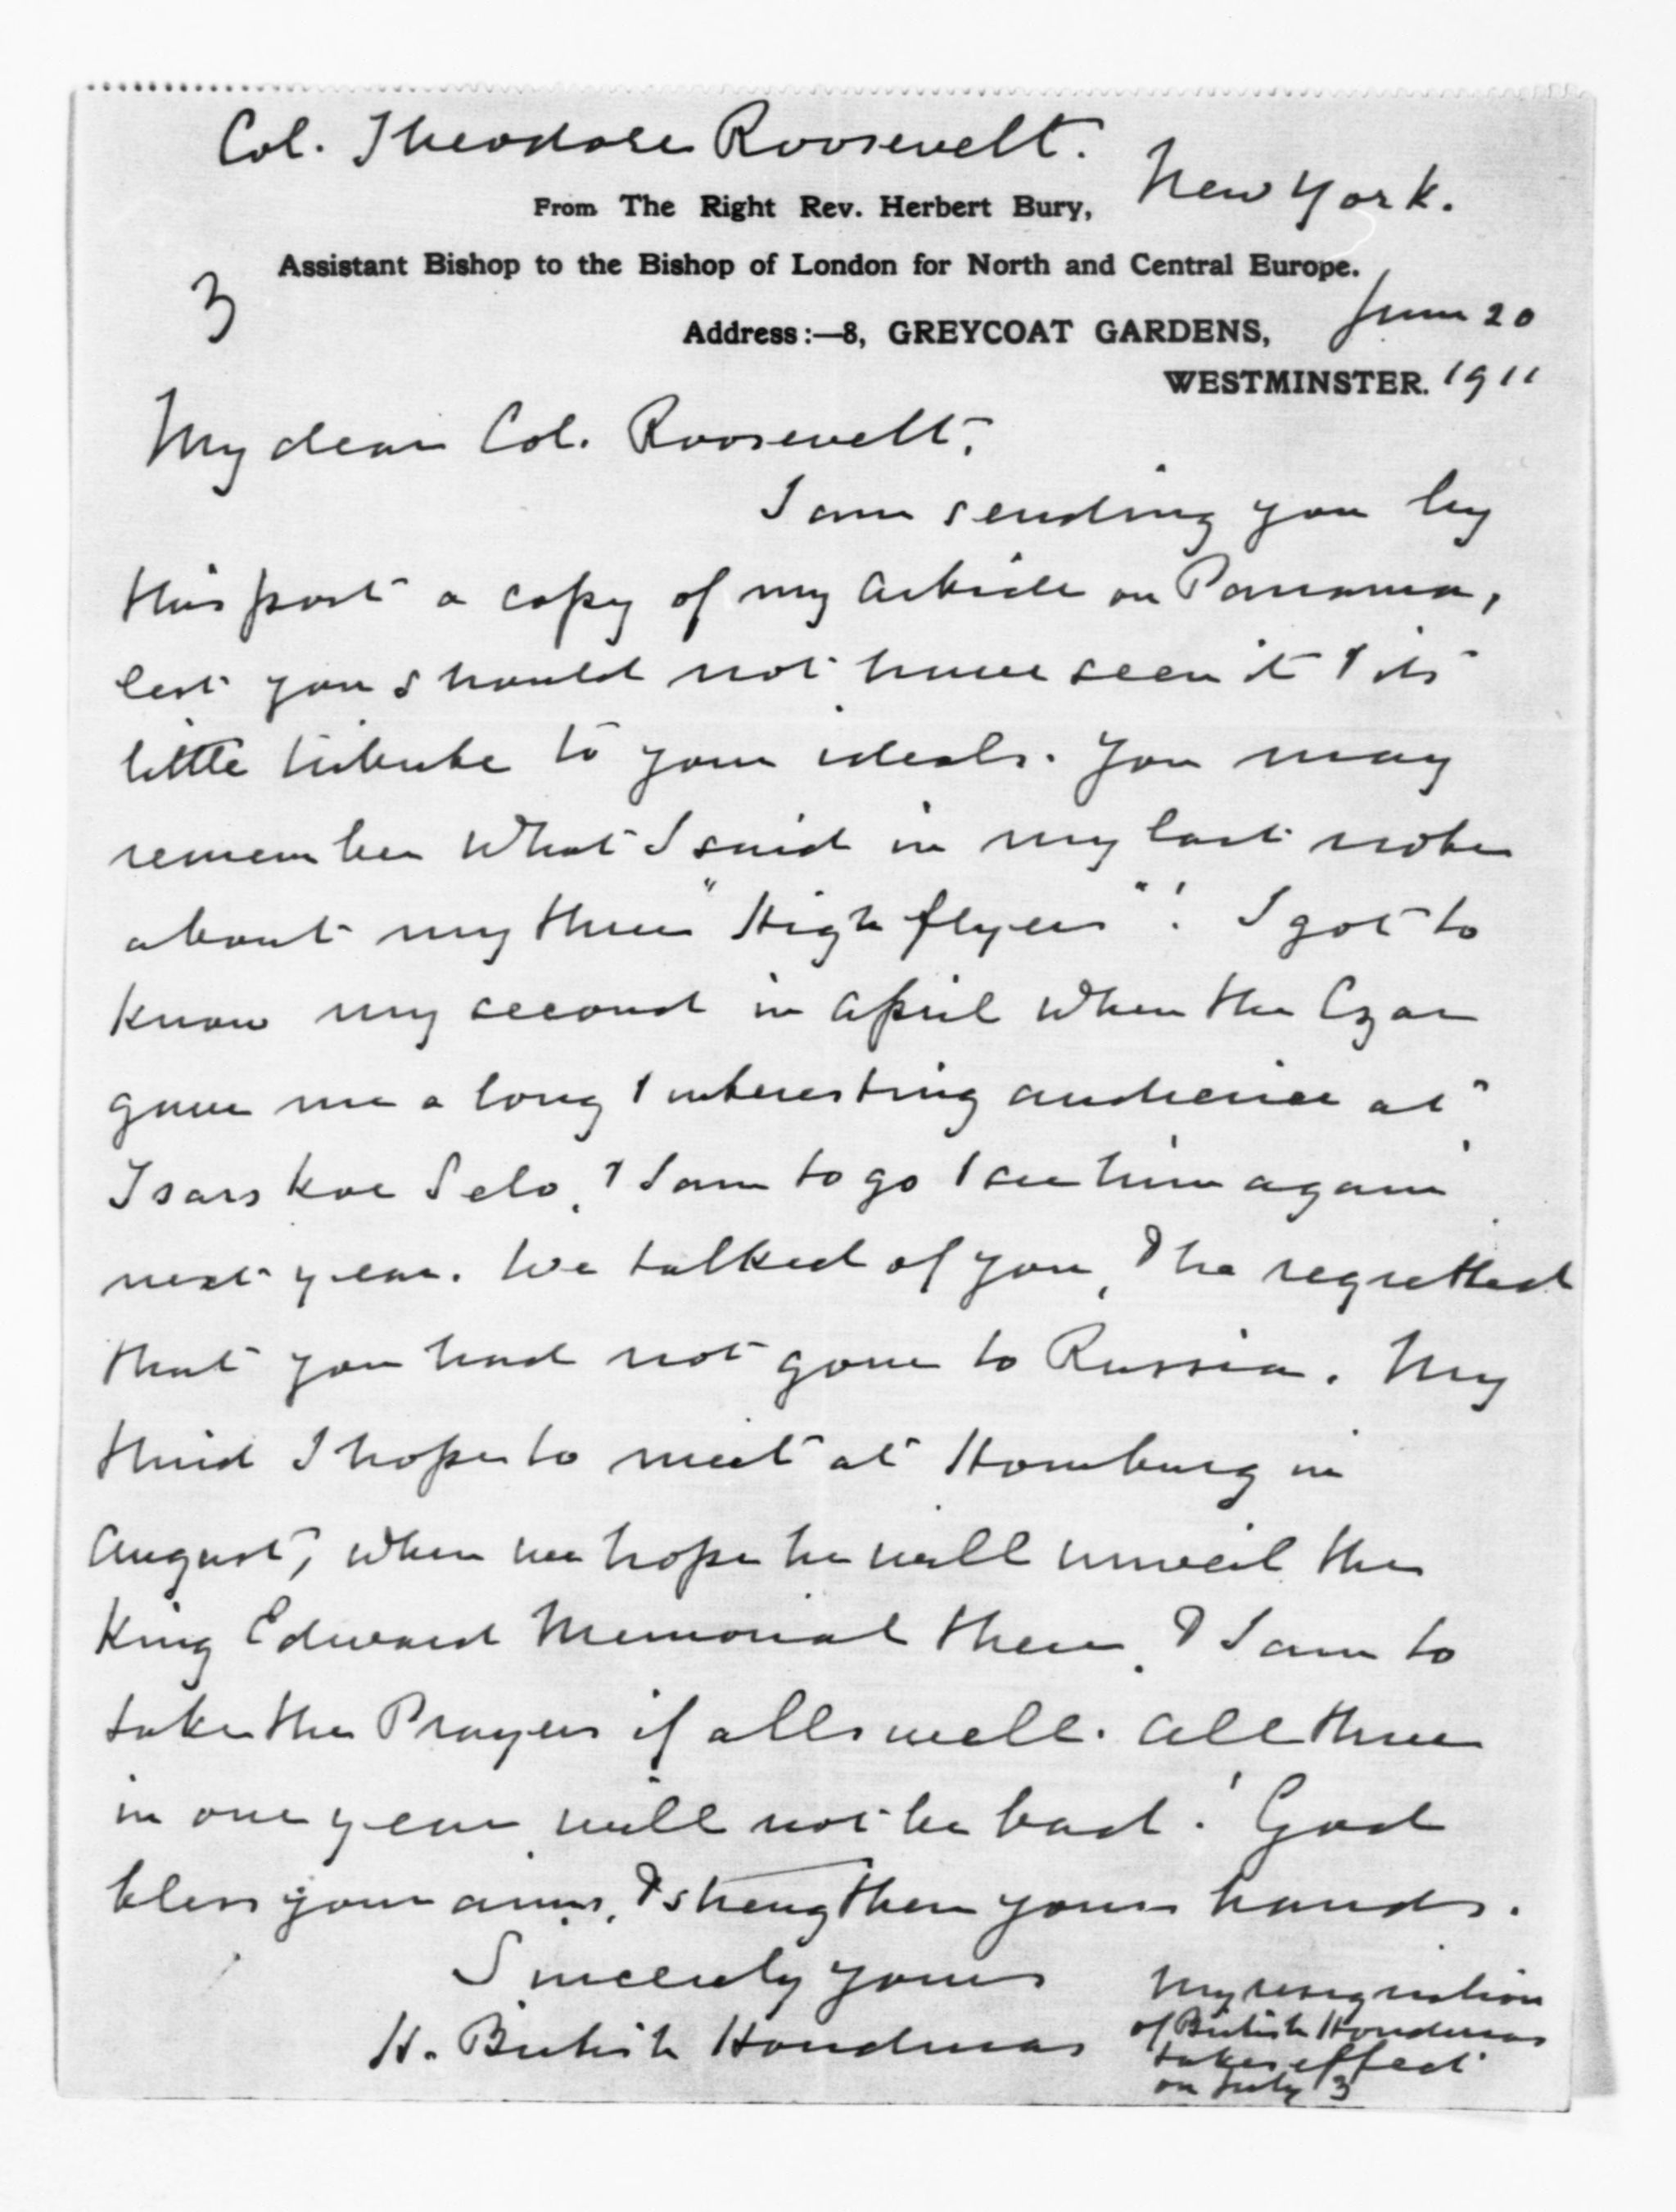 Col. Theodore Roosevelt.
New York.
From The Right Rev. Herbert Bury,
Assistant Bishop to the Bishop of London for North and Central Europe.
3
Address:—8, GREYCOAT GARDENS,
June 20
WESTMINSTER. 1911
My dear Col. Roosevelt,
I am sending you by
this post a copy of my Article on Panama,
lest you should not have seen it & its
little tribute to your ideals. You may
remember what I said in my last note
about my three "High flyers"! I got to
know my second in April when the Czar
gave me a long & interesting audience at
Tsarskoe Selo, & I am to go & see him again
next year. We talked of you, & he regretted
that you had not gone to Russia. My
third I hope to meet at Homburg in
August, when we hope he will unveil the
King Edward Memorial there, & I am to
take the Prayers if all's well. All three
in one year will not be bad! God
bless your aims, & strengthen your hands.
Sincerely yours
H. British Honduras
My resignation
of British Honduras
takes effect
on July 3